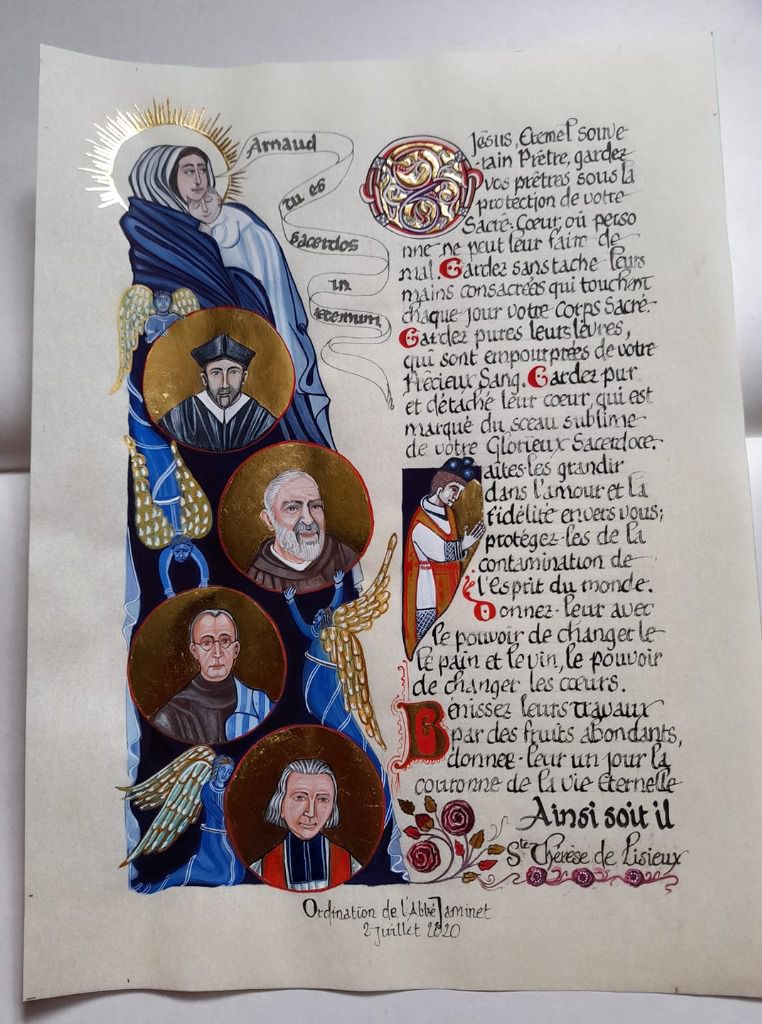 Arnaud
tu es
sacerdos
in
æternum
Jésus, Eternel souve-
rain Prêtre, gardez
vos prêtres sous la
protection de votre
Sacré-Cœur, où perso
nne ne peut leur faire de
mal. Gardez sans tache leurs
mains consacrées qui touchent
chaque jour votre Corps Sacré.
Gardez pures leurs lèvres,
qui sont empourprées de votre
Précieux Sang. Gardez pur
et détaché leur cœur, qui est
marqué du sceau sublime
de votre Glorieux Sacerdoce.
Faites-les grandir
dans l'amour et la
fidélité envers vous;
protégez-les de la
contamination de
l'esprit du monde.
Donnez-leur avec
le pouvoir de changer le
le pain et le vin, le pouvoir
de changer les cœurs.
Bénissez leurs travaux
par des fruits abondants,
donnez-leur un jour la
couronne de la vie Eternelle
Ainsi soit il
Ste Thérèse de Lisieux
Ordination de l'Abbé Jaminet
2 juillet 2020